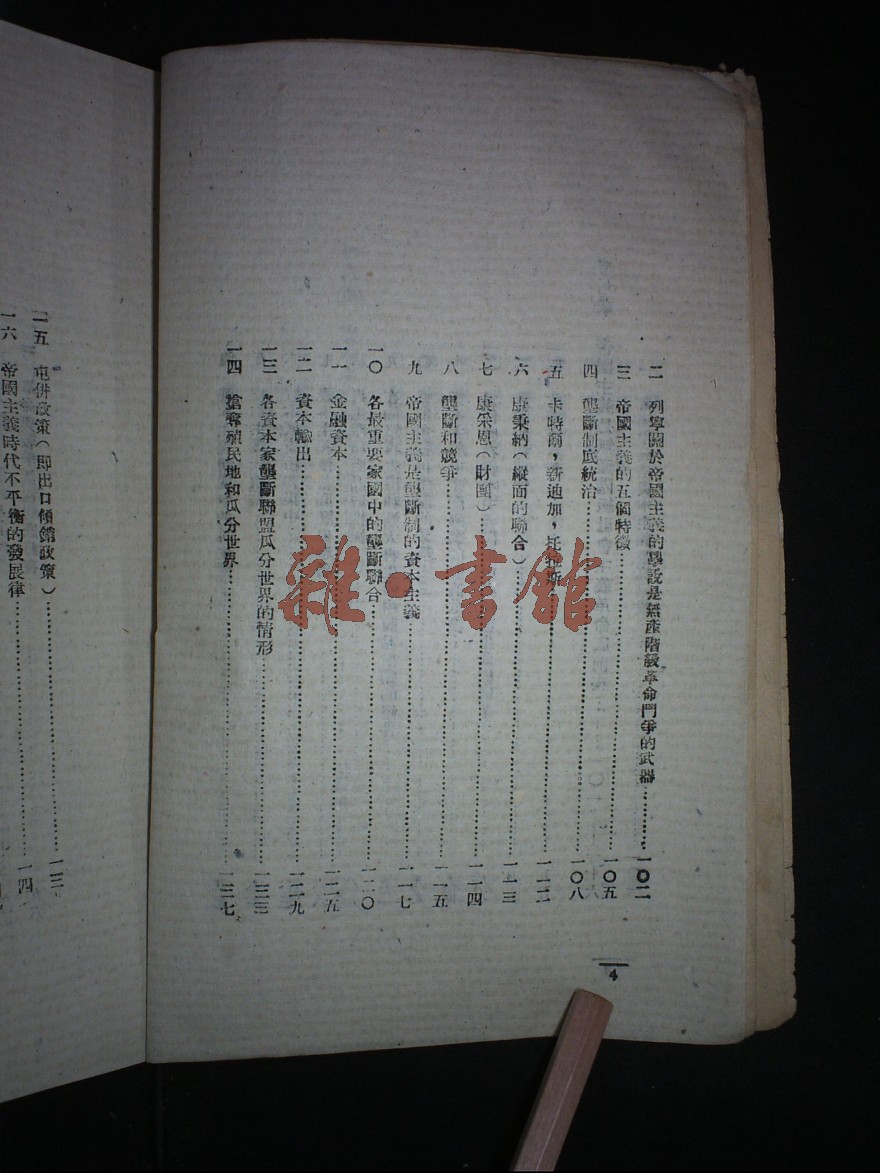 二　列寧關於帝國主義的學說是無產階級革命鬥爭的武器…………一〇二
三　帝國主義的五個特徵…………一〇五
四　壟斷制底統治…………一〇八
五　卡特爾，新迪加，托拉斯…………一一二
六　康秉納（縱面的聯合）…………一一三
七　康采恩（財團）…………一一四
八　壟斷和競爭…………一一五
九　帝國主義是壟斷制的資本主義…………一一七
一〇　各最重要家國中的壟斷聯合…………一二〇
一一　金融資本…………一二五
一二　資本輸出…………一二九
一三　各資本家壟斷聯盟瓜分世界的情形…………一三三
一四　搶奪殖民地和瓜分世界…………一三七
4
屯併政策（即出口傾銷政策）…………
一六　帝國主義時代不平衡的發展律…………
雜·書館